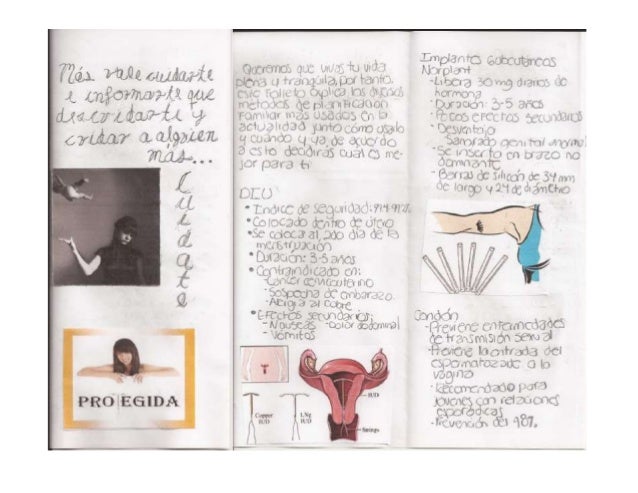 Más vale cuidarte
e informarte que
descuidarte y
cuidar a alguien
más...
Cuidate
PROTEGIDA
Queremos que vivas tu vida
plena y tranquila, por tanto,
este folleto explica los diversos
métodos de planificación
familiar más usados en la
actualidad junto cómo usarlo
y cuándo y ya de acuerdo
a esto decidiras cual es me-
jor para ti
DIU
• Indice de seguridad:
• Colocado dentro de útero
• Se coloca al 2do dia de la
menstruación
• Duración: 3-5 años
• Contraindicado en:
- Cáncer cervicouterino
- Sospecha de embarazo
- Alergia al cobre
• Efectos secundarios:
- Nauseas - Dolor abdominal
- Vómitos
Copper
IUD
LNg
IUD
IUD
Strings
Implantes Subcutáneos
Norplant
- Libera 30 mg diarios de
hormona
- Duración: 3-5 años
- Pocos efectos secundarios
- Desventaja
Sangrado genital anormal
- Se inserta en brazo no
dominante
- Barras de silicón de 34 mm
de largo y 2.4 de diámetro
Condón
- Previene enfermedades
de transmisión sexual
- Previene la entrada del
espermatozoide a la
vagina
- Recomendado para
jovenes con relaciones
esporádicas
- Prevención del